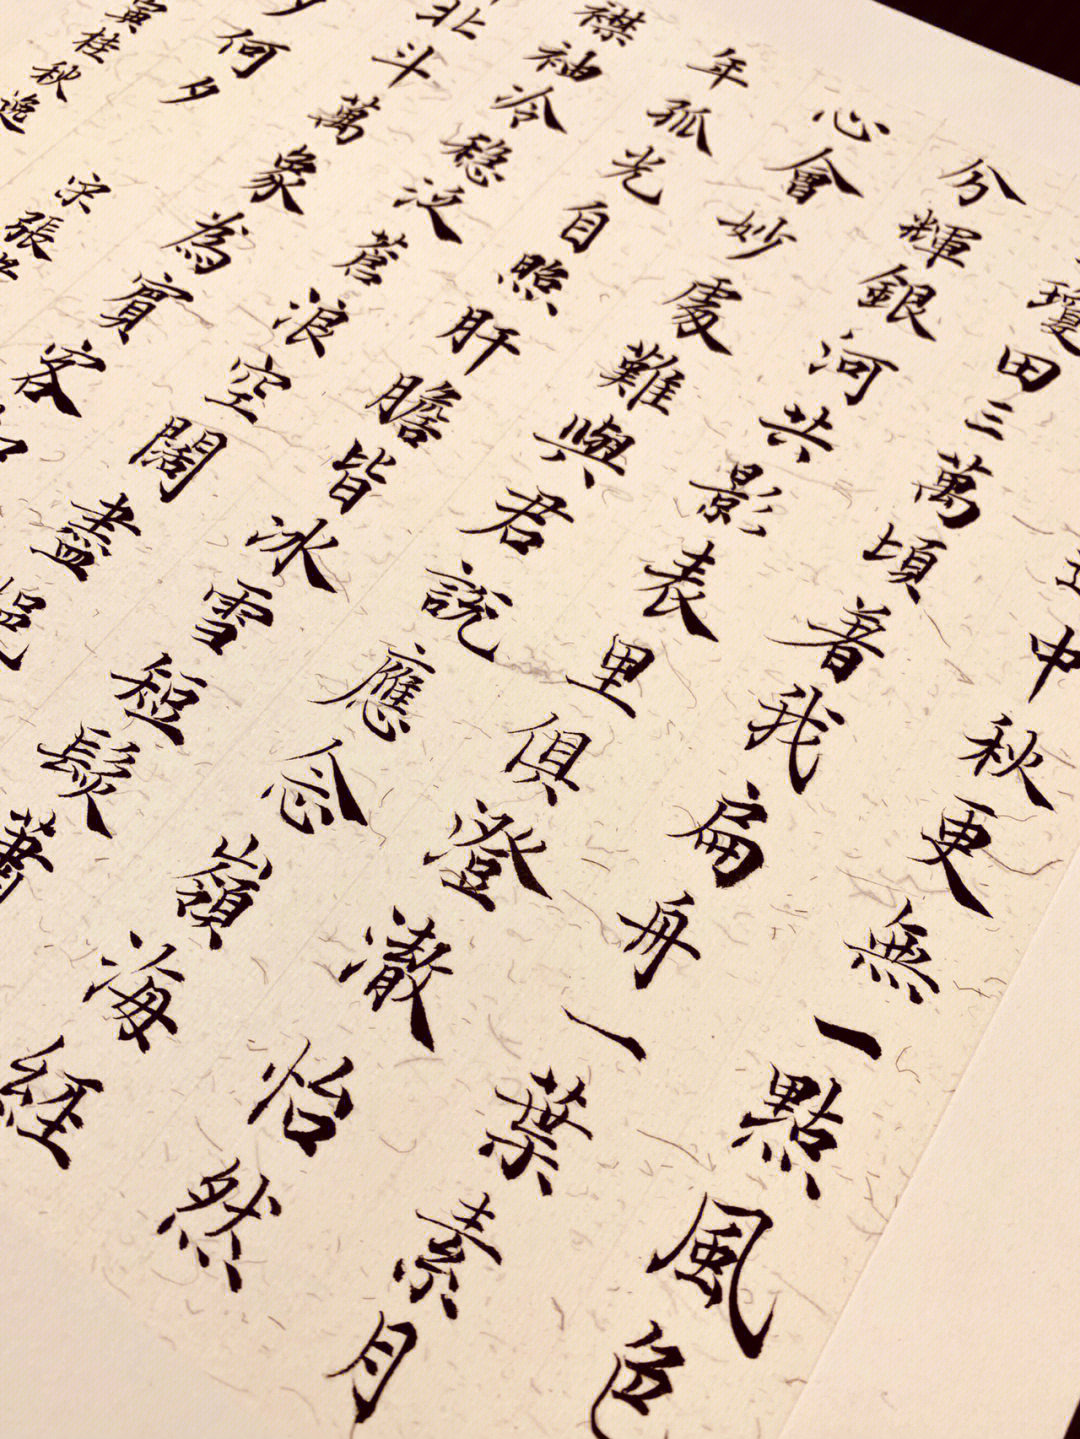 中秋更無一點風色
瓊田三萬頃著我扁舟一葉素月
分輝銀河共影表里俱澄澈怡然
心會妙處難與君說應念嶺海経
年孤光自照肝膽皆冰雪短髮蕭
襟袖冷稳泛蒼浪空闊盡挹
北斗萬象為賓客
夕何夕 宋張
寅桂秋逸